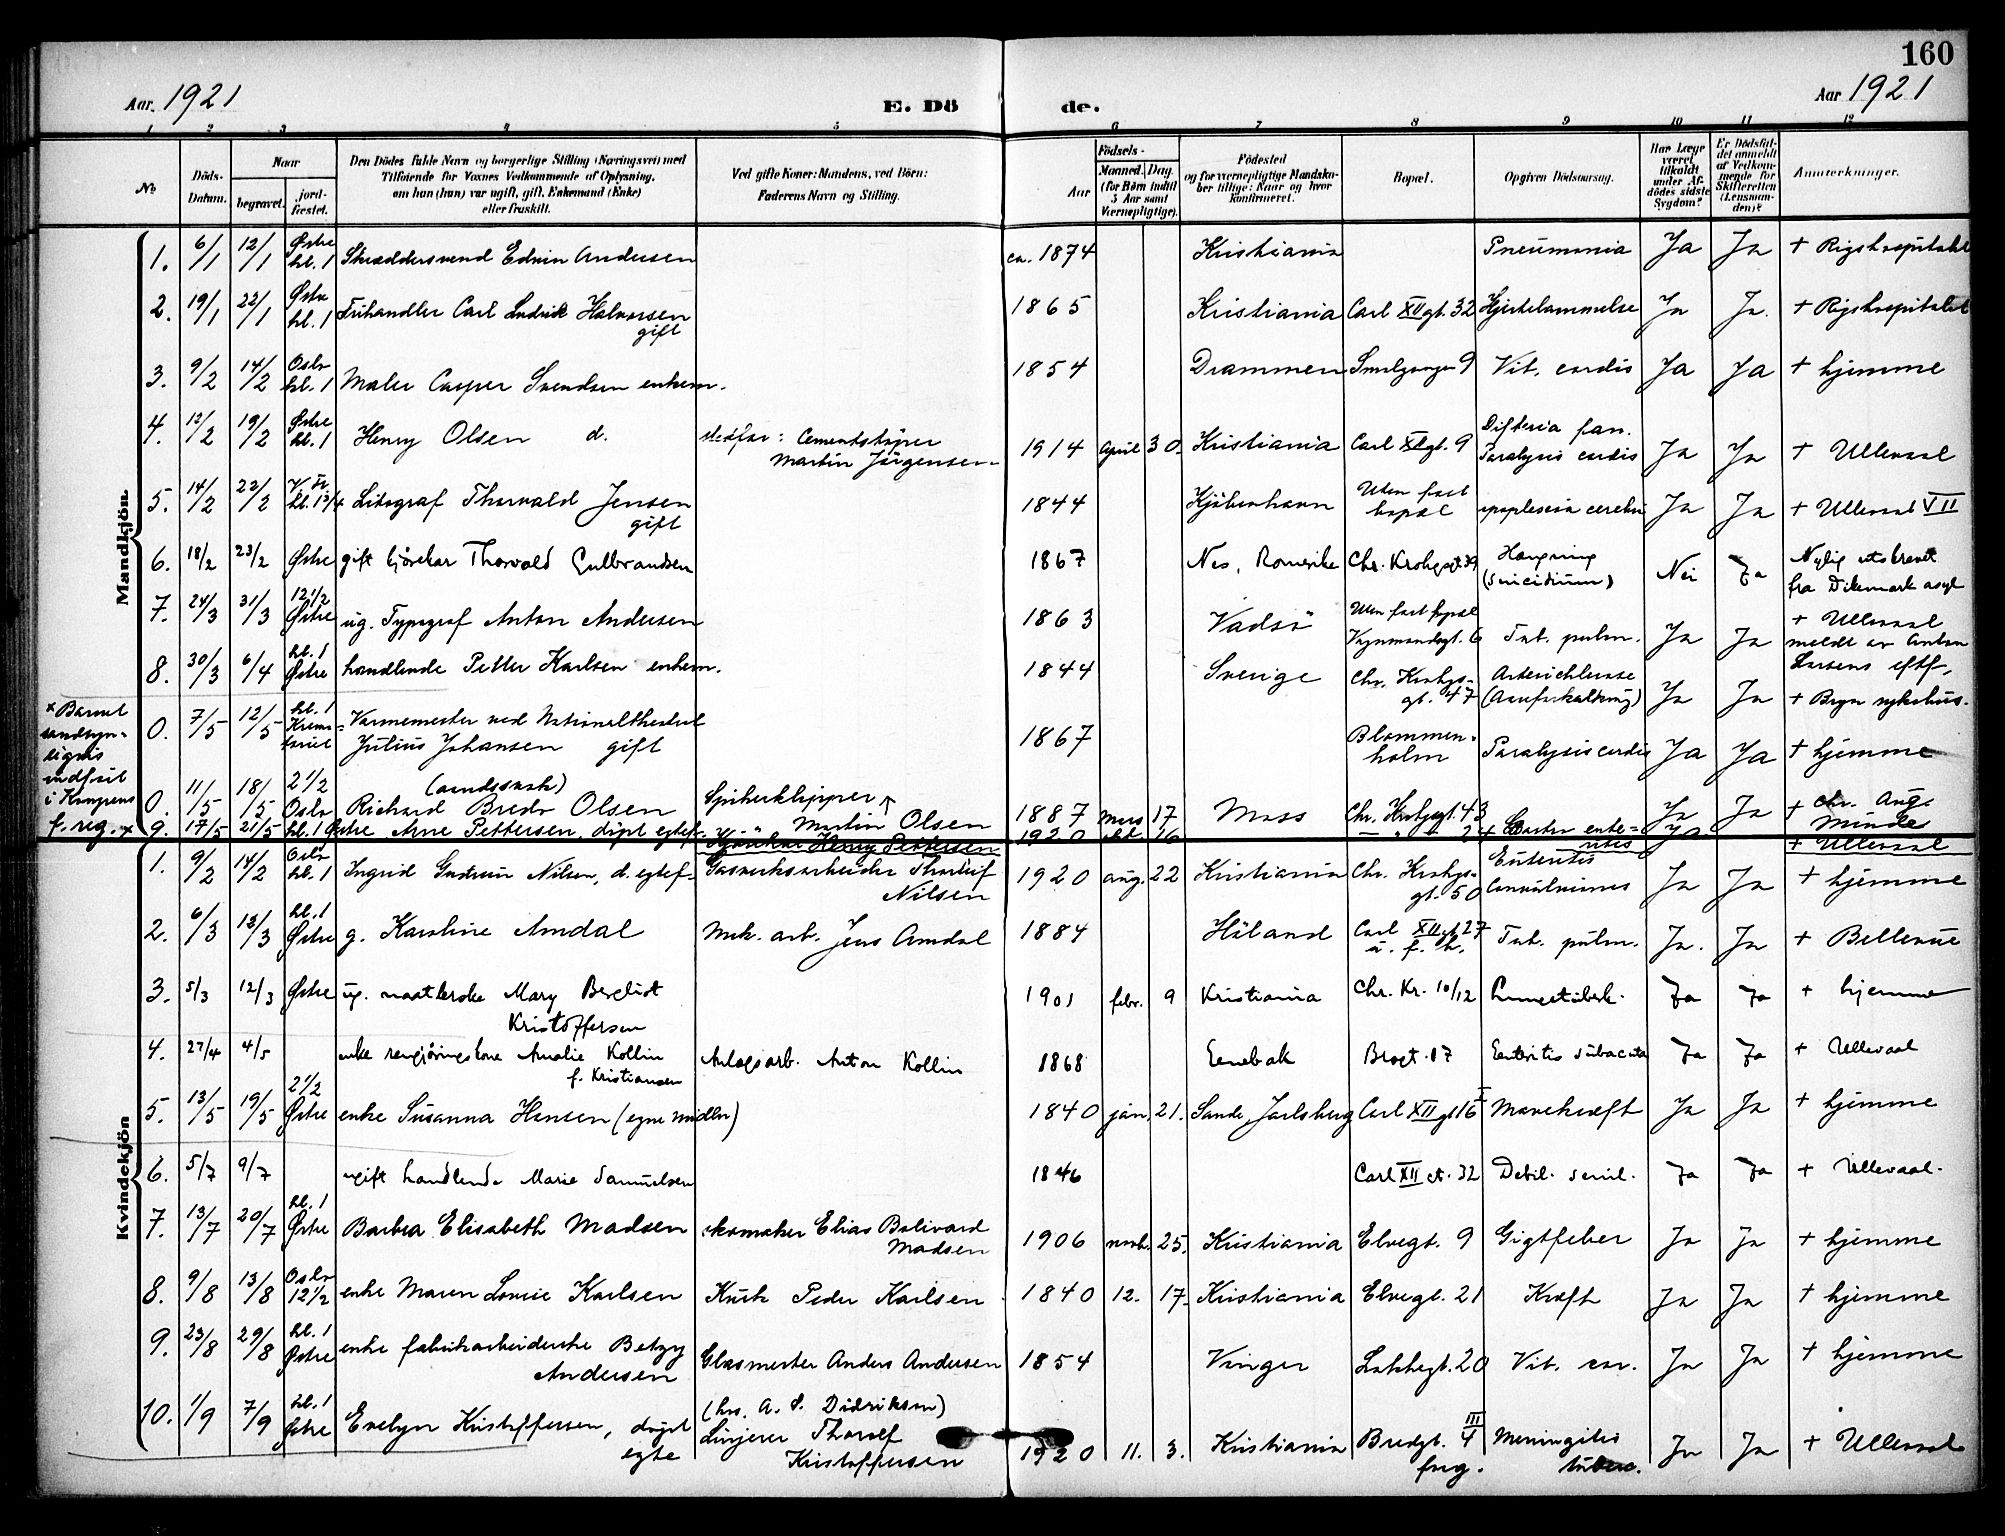 160
Aar. 1921
E. Dö de.
Aar 1921
1 2 3 4 5 6 7 8 9 10 11 12
No
Döds-Datum.
Naar
begravet.
jord-fæstet.
Den Dödes fulde Navn og borgerlige Stilling (Næringsvei) med
Tilföiende for Voxnes Vedkommende af Oplysning,
om han (hun) var ugift, gift, Enkemand (Enke)
eller fraskilt.
Ved gifte Koner: Mandens, ved Börn:
Faderens Navn og Stilling.
Födsels-
Aar
Maaned. Dag.
(for Börn indtil
5 Aar samt
Værnepligtige).
Födested
og for værnepligtige Mandska-
ber tillige: Naar og hvor
konfirmeret.
Bopæl.
Opgiven Dödsaarsag.
Har Læge
været
tilkaldt
under Af-
dödes sidste
Sygdom?
Er Dödsfal-
det anmeldt
af Vedkom-
mende for
Skifteretten
(Lensman-
den)?
Anmerkninger.
Mandkjön
1. 6/1 12/1 Østre kl. 1 Skræddersvend Edvin Andersen ca. 1874 Kristiania Pneumonia Ja Ja + Rigshospitalet
2. 19/1 22/1 Østre kl. 1 Frihandler Carl Ludvik Halvorsen gift 1865 Kristiania Carl XII gt. 32 Hjertelammelse Ja Ja. + Rigshospitalet
3. 9/2 14/2 Oslo kl. 1 Maler Casper Svendsen enkem. 1854 Drammen Smalgangen 9 Vit. cordis Ja Ja + hjemme
4. 12/2 19/2 Østre kl. 1 Henry Olsen d. Stedfar: Cementstøper Martin Jörgensen 1914 april 30. Kristiania Carl XII gt. 9 Difteria fau. Paralysis cordis Ja Ja + Ullevaal
5. 14/2 22/2 V. Fr kl. 1 3/4 Litograf Thorvald Jensen gift 1844 Kjöbenhavn Uten fast bopæl apoplescia cerebri Ja Ja + Ullevaal VII
6. 18/2 23/2 Østre gift kjørekar Thorvald Gulbrandsen 1867 Nes, Romerike Chr. Krohgsgt 39 Hængning (Suicidium) Nei Ja Nylig utskrevet fra Dikemark asyl
7. 24/3 31/3 12 1/2 Østre ug. Typograf Anton Andersen 1863 Vadsö Uten fast bopæl Vognmandsgt. 6 Tub. pulm. Ja Ja + Ullevaal meldt av Anton Larsens eftf.
8. 30/3 6/4 kl. 1 Østre handlende Petter Karlsen enkem. 1844 Sverige Chr. Krohgs-gt. 47 (Aareforkalkning) Ja Ja + Bryn sykehus.
x Barnet
sandsyn-
ligvis
indført
i Kampens
f. reg. x
0. 7/5 12/5 kl. 1 Krema-toriet Varmemester ved Nationaltheatret Julius Johansen gift 1867 Blommen-holm Paralysis cordis Ja Ja + hjemme
0. 11/5 18/5 2 1/2 Oslo (aandssvak) Richard Bredo Olsen Spikerklipper Martin Olsen 1887 mars 17 Moss Chr. Krohgsgt. 43 Ja Ja + Chr. Aug. Minde
9. 17/5 21/5 kl. 1 Østre Arne Pettersen, döpt egtef. Kjørekar Henry Pettersen 1920 okt. 16 Ja + Ullevaal
Kvindekjön
1. 9/2 14/2 Oslo kl. 1 Ingrid Gudrun Nilsen, d. egtef. Gasverksarbeider Thorleif Nilsen 1920 aug. 22 Kristiania Chr. Krohgs-gt. 50 Enteritis Convulsiones Ja Ja + hjemme
2. 6/3 13/3 kl. 1 Østre g. Karoline Amdal Mek. arb. Jens Amdal 1884 Höland Carl XII gt 27 u. f. h. Tub. pulm. Ja. Ja + Bellevue
3. 5/3 12/3 Østre ug. Mary Bergliot Kristoffersen 1901 febr. 9 Kristiania Chr. Kr. 10/12 Lungetuberk. Ja Ja + hjemme
4. 27/4 4/5 enke rengjøringskone Amalie Kollin f. Kristiansen Anlægsarb. Anton Kollin 1868 Enebak Brogt. 17 Enteritis subacuta Ja Ja + Ullevaal
5. 13/5 19/5 2 1/2 Østre enke Susanna Hansen (egne midler) 1840 jan. 21. Sande, Jarlsberg Carl XII gt 16 I Mavekræft Ja Ja + hjemme
6. 5/7 9/7 ugift handlende Marie Samuelsen 1846 Carl XII gt. 32 Debil. senil. Ja Ja + Ullevaal.
7. 13/7 20/7 kl. 1 Østre Barbra Elisabeth Madsen skomaker Elias Bolivard Madsen 1906 novb. 25. Kristiania Elvegt. 9 Gigtfeber Ja Ja + hjemme
8. 9/8 13/8 Oslo 12 1/2 enke Maren Lovise Karlsen Kusk Peder Karlsen 1840 12. 17. Kristiania Elvegt. 21 Kræft Ja Ja + hjemme
9. 23/8 29/8 kl. 1 Østre enke fabrikarbeiderske Betzy Andersen Glasmester Anders Andersen 1854 Vinger Lakkegt. 20 Vit. cor. Ja Ja + hjemme
10. 1/9 7/9 kl. 1 Østre Evelyn Kristoffersen, døpt egte (hos A. S. Didriksen) Linjerer Thoralf Kristoffersen 1920 11. 3. Kristiania Bredgt. 4 III Meningitis tuberc. Ja Ja + Ullevaal